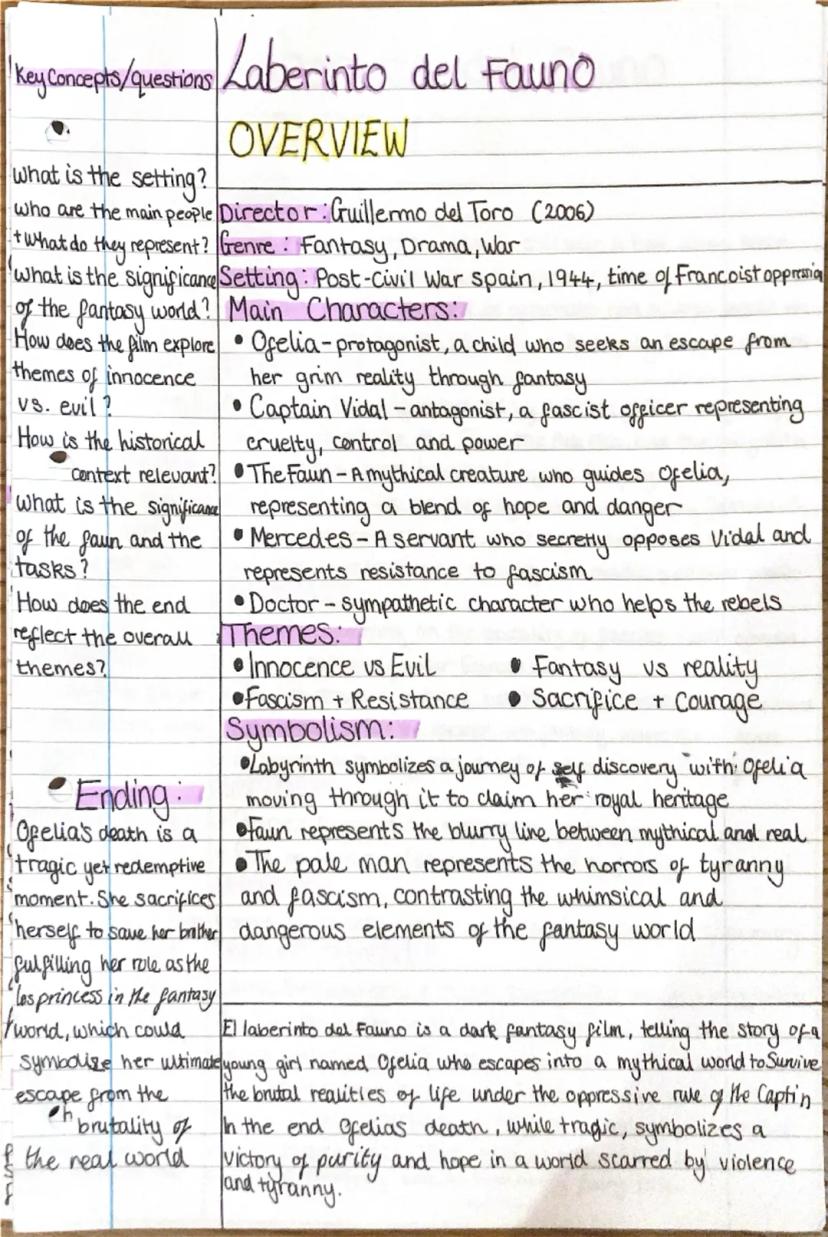 Key Concepts/questions
What is the setting?
who are the main people
+ What do they represent?
What is the significance
of the fantasy world?
How does the film explore
themes of innocence
vs. evil?
How is the historical
context relevant?
What is the significance
of the faun and the
tasks?
How does the end
reflect the overall
themes?
Ending:
Ofelia's death is a
tragic yet redemptive
moment. She sacrifices
herself to save her brother
fulfilling her role as the
los princess in the fantasy
world, which could
symbolize her ultimate
escape from the
brutality of
the real world
Laberinto del Fauno
OVERVIEW
Director: Guillermo del Toro (2006)
Genre: Fantasy, Drama, War
Setting: Post-Civil War Spain, 1944, time of Francoist oppression
Main Characters:
• Ofelia - protagonist, a child who seeks an escape from
her grim reality through fantasy
• Captain Vidal - antagonist, a fascist officer representing
cruelty, control and power
• The Faun - A mythical creature who guides Ofelia,
representing a blend of hope and danger
• Mercedes - A servant who secretly opposes Vidal and
represents resistance to fascism
• Doctor - sympathetic character who helps the rebels
Themes:
• Innocence vs Evil • Fantasy vs reality
• Fascism + Resistance • Sacrifice + Courage
Symbolism:
• Labyrinth symbolizes a journey of self discovery with Ofelia
moving through it to claim her royal heritage
• Faun represents the blurry line between mythical and real
• The pale man represents the horrors of tyranny
and fascism, contrasting the whimsical and
dangerous elements of the fantasy world
El laberinto del Fauno is a dark fantasy film, telling the story of a
young girl named Ofelia who escapes into a mythical world to Survive
the brutal realities of life under the oppressive rule of the Captin
In the end Ofelias death, while tragic, symbolizes a
victory of purity and hope in a world scarred by violence
and tyranny.